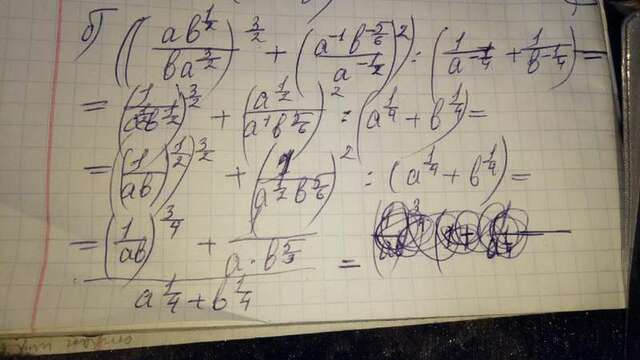 б) ((ab^(1/2) / ba^(3/2))^(3/2) + (a^(-1) b^(-5/6) / a^(-1/2))^2) : (1 / a^(-1/4) + 1 / b^(-1/4)) =
= (1 / b^(1/2))^(3/2) + (a^(1/2) / a^1 b^(5/6))^2 : (a^(1/4) + b^(1/4)) =
= ((1 / ab)^(1/2))^(3/2) + (1 / a^(1/2) b^(5/6))^2 : (a^(1/4) + b^(1/4)) =
= ((1 / ab)^(3/4) + 1 / (a · b^(5/3))) / (a^(1/4) + b^(1/4)) =